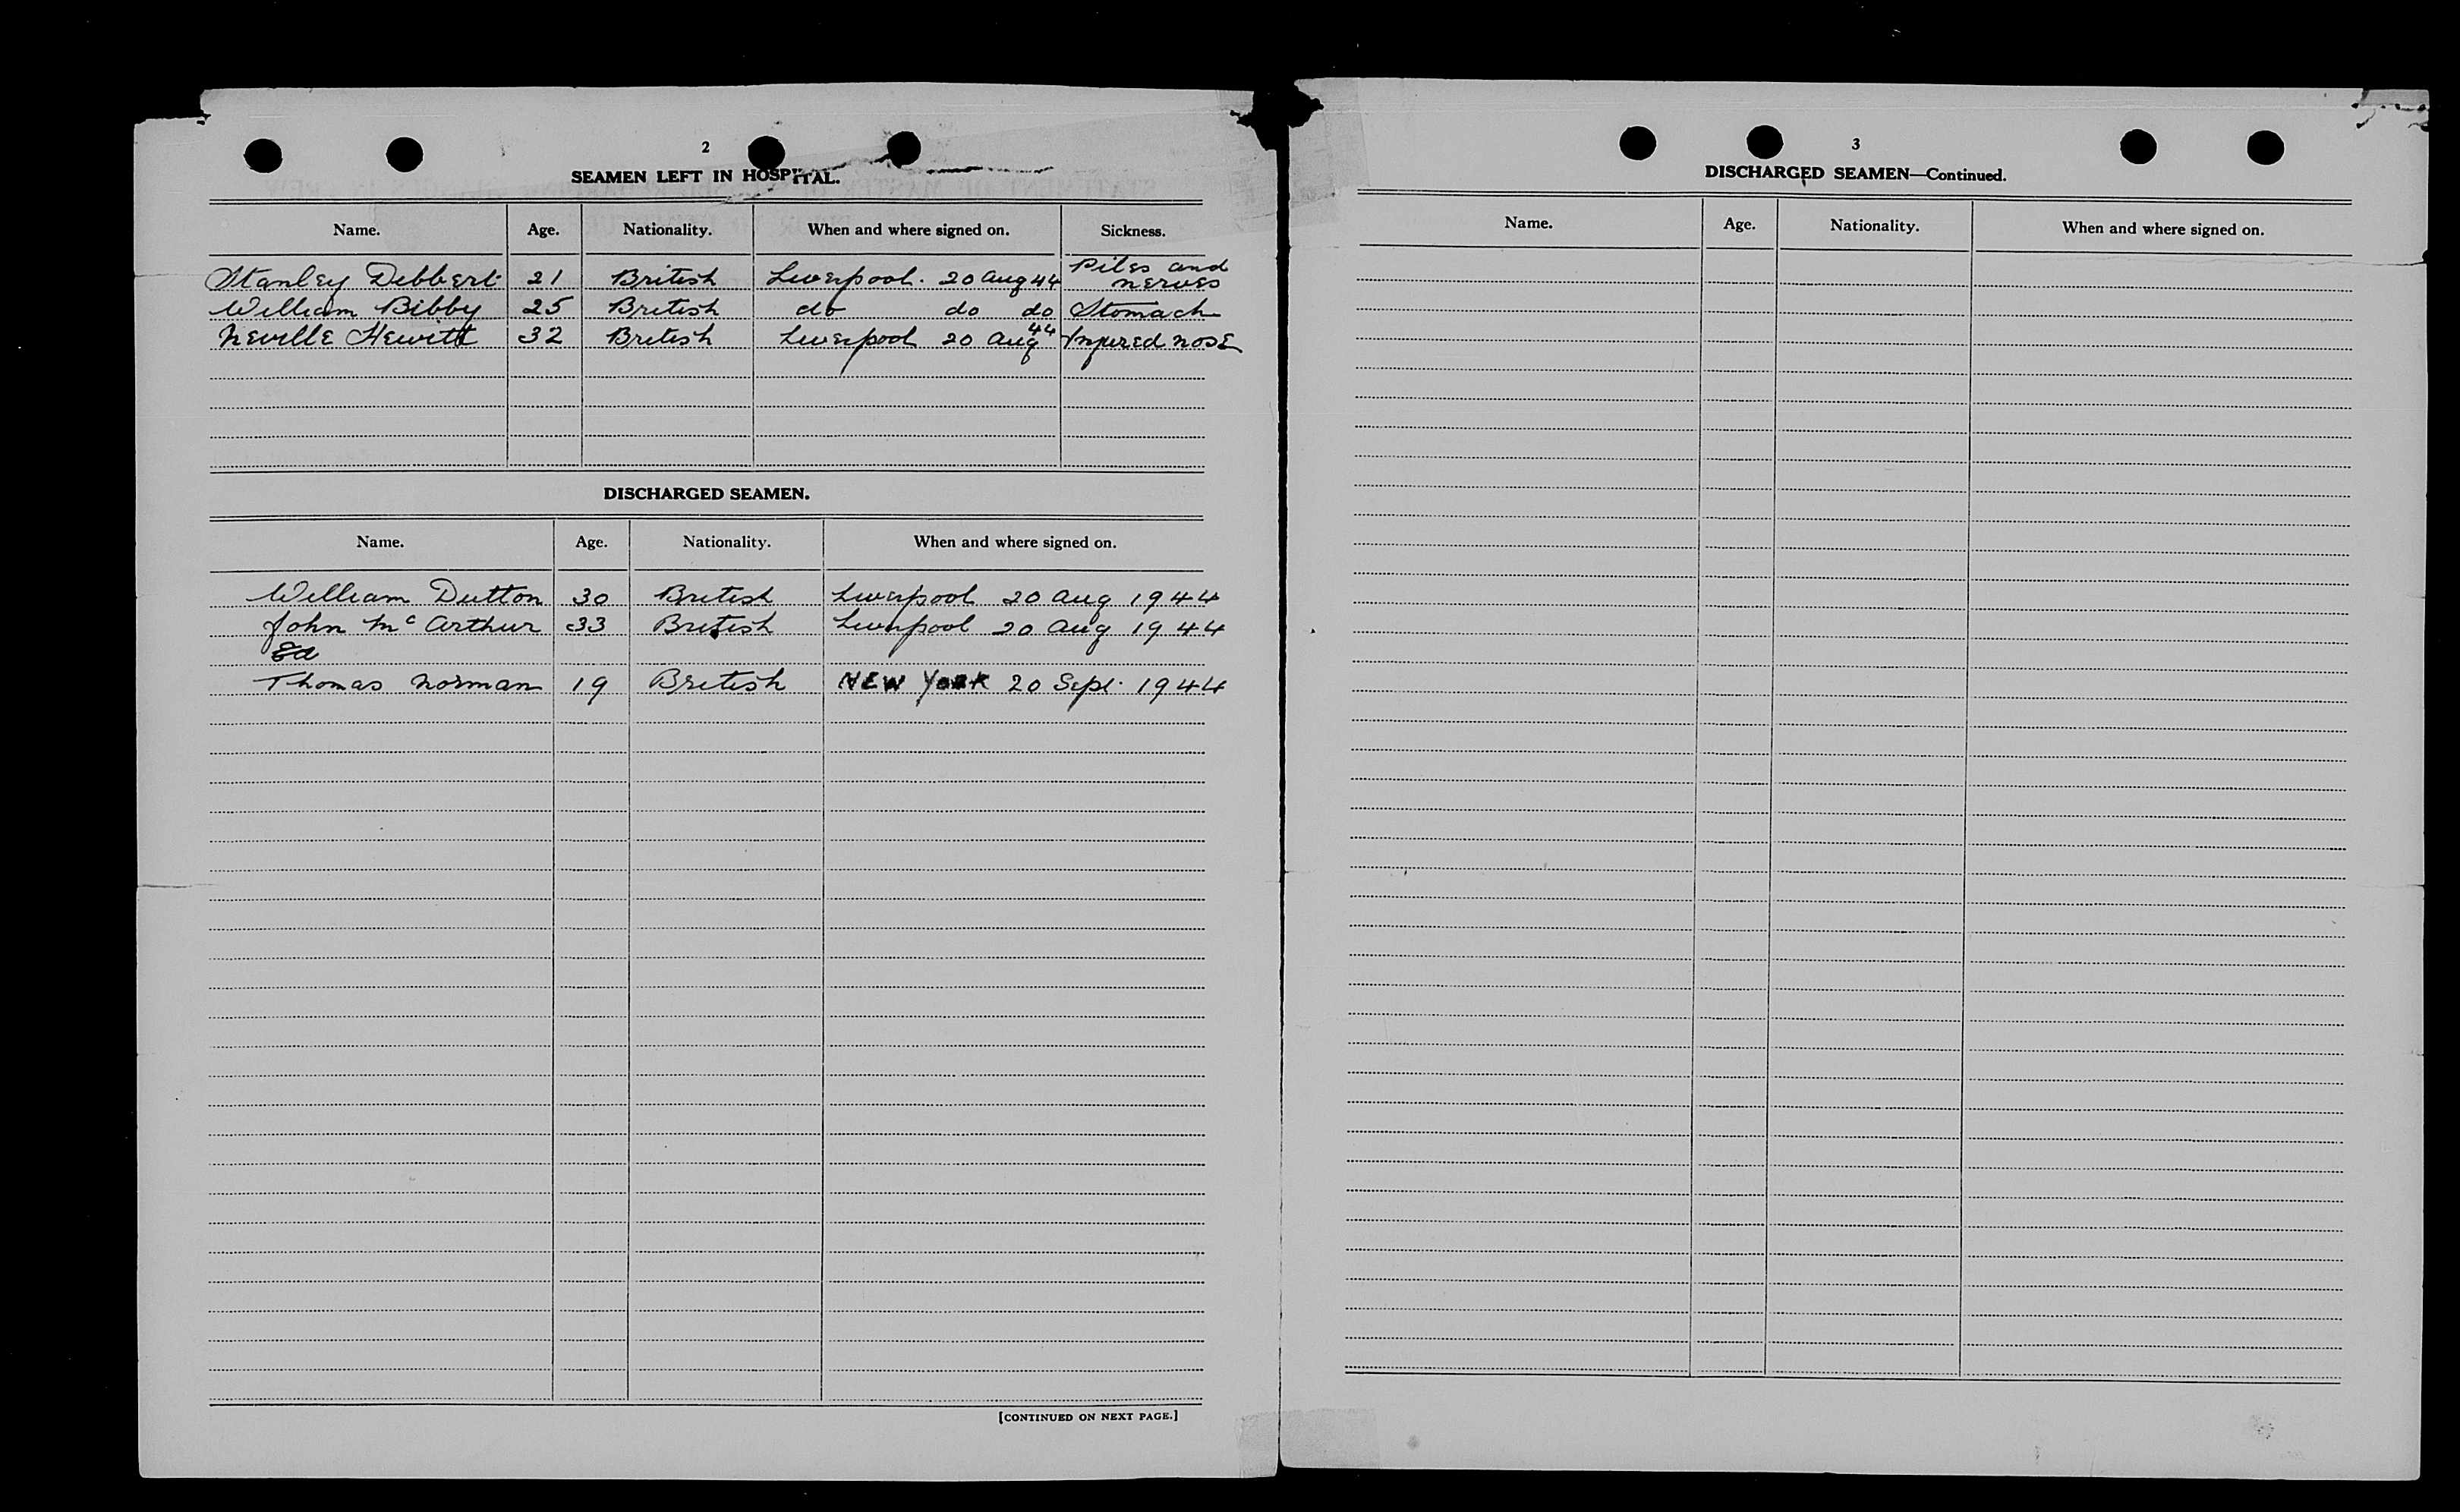 2
SEAMEN LEFT IN HOSPITAL.
Name. Age. Nationality. When and where signed on. Sickness.
Stanley Debbert 21 British Liverpool. 20 Aug 44 Piles and
nerves
William Bibby 25 British do do do Stomach
Neville Hewitt 32 British Liverpool 20 Aug 44 Injured nose
DISCHARGED SEAMEN.
Name. Age. Nationality. When and where signed on.
William Dutton 30 British Liverpool 20 Aug 1944
John Mc Arthur 33 British Liverpool 20 Aug 1944
Ed
Thomas Norman 19 British NEW YORK 20 Sept. 1944
[CONTINUED ON NEXT PAGE.]
3
DISCHARGED SEAMEN—Continued.
Name. Age. Nationality. When and where signed on.